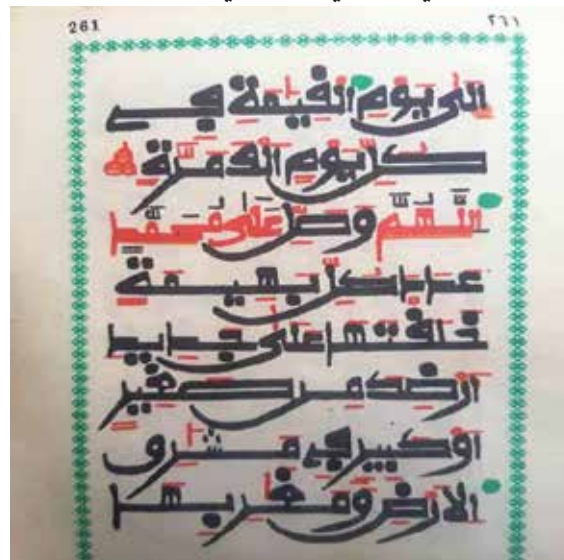 261 ٢٦١
الى يوم القيمة في
كل يوم الف مرة
اللهم وصل على محمد
عدد كل بهيمة
خلقتها على جديد
ارضك من صغير
او كبير في مشرق
الارض ومغربها